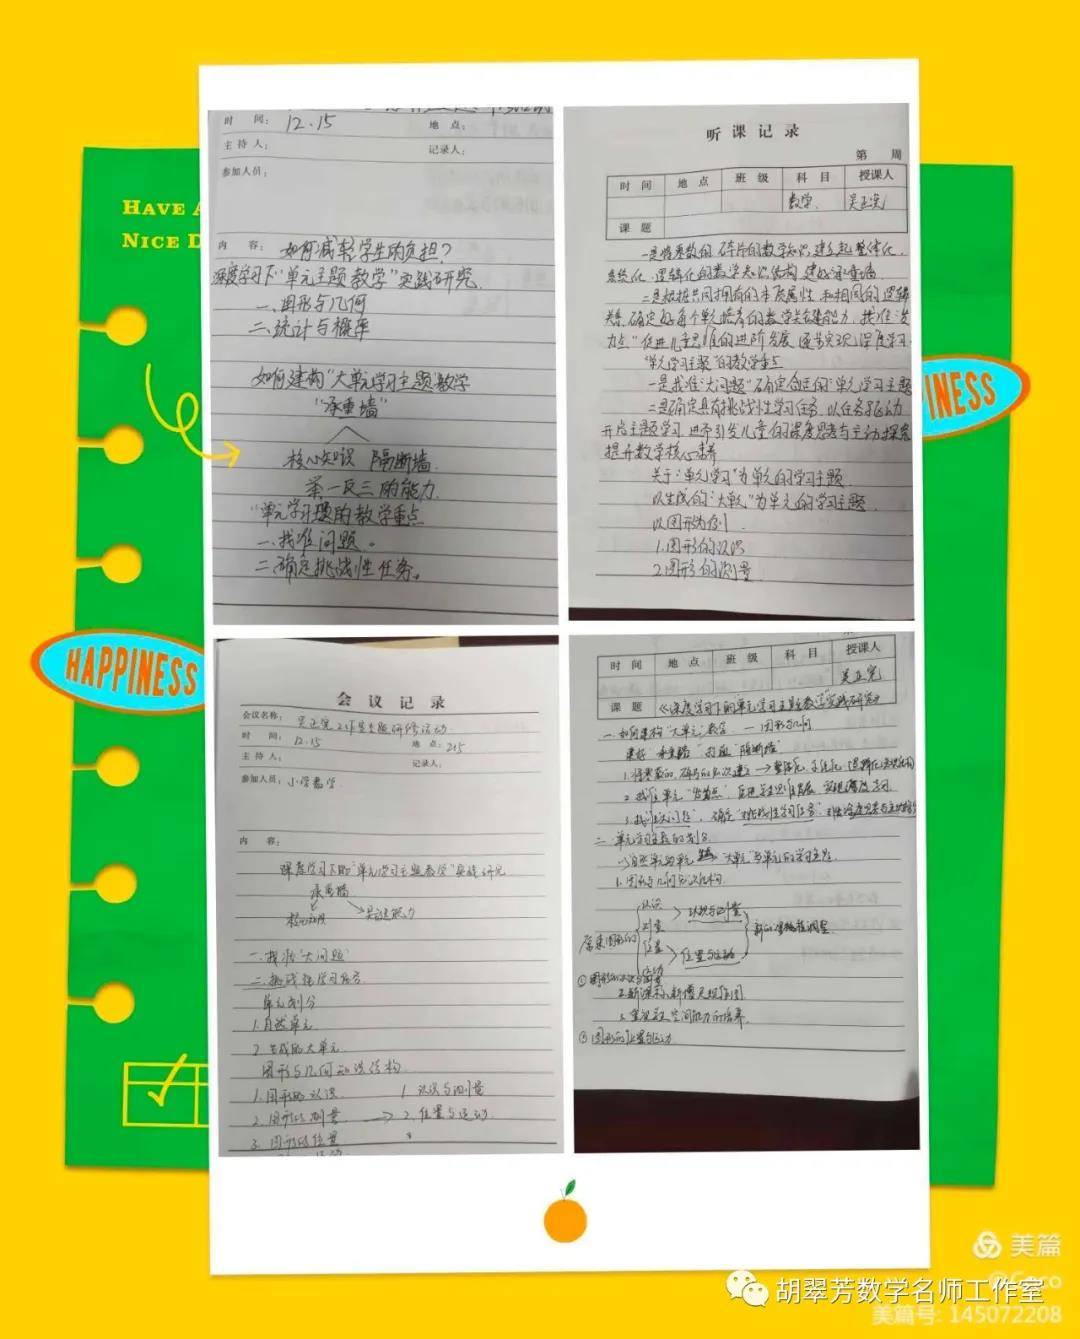 HAVE A
NICE D
HAPPINESS
PINESS
时 间： 12.15 地 点：
主 持 人： 记录人：
参加人员：
内 容： 如何减轻学生的负担？
深度学习下“单元主题教学”实践研究.
一、图形与几何
二、统计与概率
如何建构“大单元学习主题”教学
“承重墙”
核心知识 隔断墙.
举一反三的能力.
“单元学习主题”的教学重点
一、找准问题。
二、确定挑战性任务。
听 课 记 录
第 周
时 间 地 点 班 级 科 目 授课人
数学. 吴正宪
课 题
一是将零散的、碎片的数学知识建立起整体化、
系统化、逻辑化的数学知识结构 建好承重墙.
二是根据共同拥有的本质属性和相同的逻辑
关系，确定好每个单元培养的数学关键能力，找准“发
力点”促进儿童思维的进阶发展 逐步实现深度学习.
“单元学习主题”的教学重点
一是找准“大问题”确定合理的“单元学习主题
二是确定具有挑战性学习任务，以任务驱动
开启主题学习，进而引发儿童的深度思考与主动探究
提升数学核心素养
关于“单元学习”为单元的学习主题
以生成的“大单元”为单元的学习主题
以图形为例.
1.图形的认识
2.图形的测量
会 议 记 录
会议名称： 吴正宪工作室主题研修活动.
时 间： 12.15 地 点： 215
主 持 人： 记录人：
参加人员： 小学数学
内 容：
深度学习下的“单元学习主题教学”实践研究
承重墙
核心知识 关键能力
一、找准“大问题”
二、挑战性学习任务
单元划分
1.自然单元
2.生成的大单元.
图形与几何知识结构.
1.图形的认识. 1.认识与测量
2.图形的测量 → 2.位置与运动.
3.图形的位置
时 间 地 点 班 级 科 目 授课人
吴正宪
课 题 《深度学习下的单元学习主题教学实践研究》
一、如何建构“大单元”教学 — 图形与几何
建好“承重墙” 打通“隔断墙”
二、单元学习主题的划分
1.图形与几何知识结构.
认识
测量 认识与测量
位置 位置与运动
运动
① 图形的认识与测量
② 图形的位置与运动
美篇
@Coco
胡翠芳数学名师工作室
美篇号: 145072208